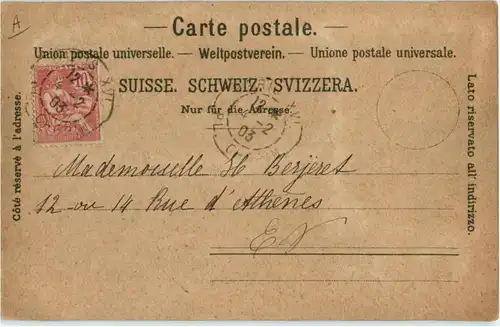 A
Carte postale.
Union postale universelle. — Weltpostverein. — Unione postale universale.
SUISSE. SCHWEIZ. SVIZZERA.
Nur für die Adresse.
Côté réservé à l'adresse.
Lato riservato all' indirizzo.
10
XVI
12 *
2
03
XVI
12 *
2
03
Mademoiselle H Berjeret
12 ou 14 Rue d'Athènes
EV